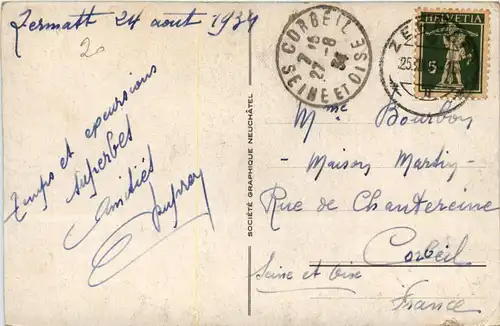 Zermatt 24 aout 1934
20
temps et excursions
superbes
Amitiés
Dupray
SOCIÉTÉ GRAPHIQUE NEUCHÂTEL
CORBEIL
7 15
27 -8
34
SEINE ET OISE
ZE
25.
HELVETIA
5
Mme Bourbon
- Maison Martin -
Rue de Chantereine
Corbeil
Seine et Oise
France